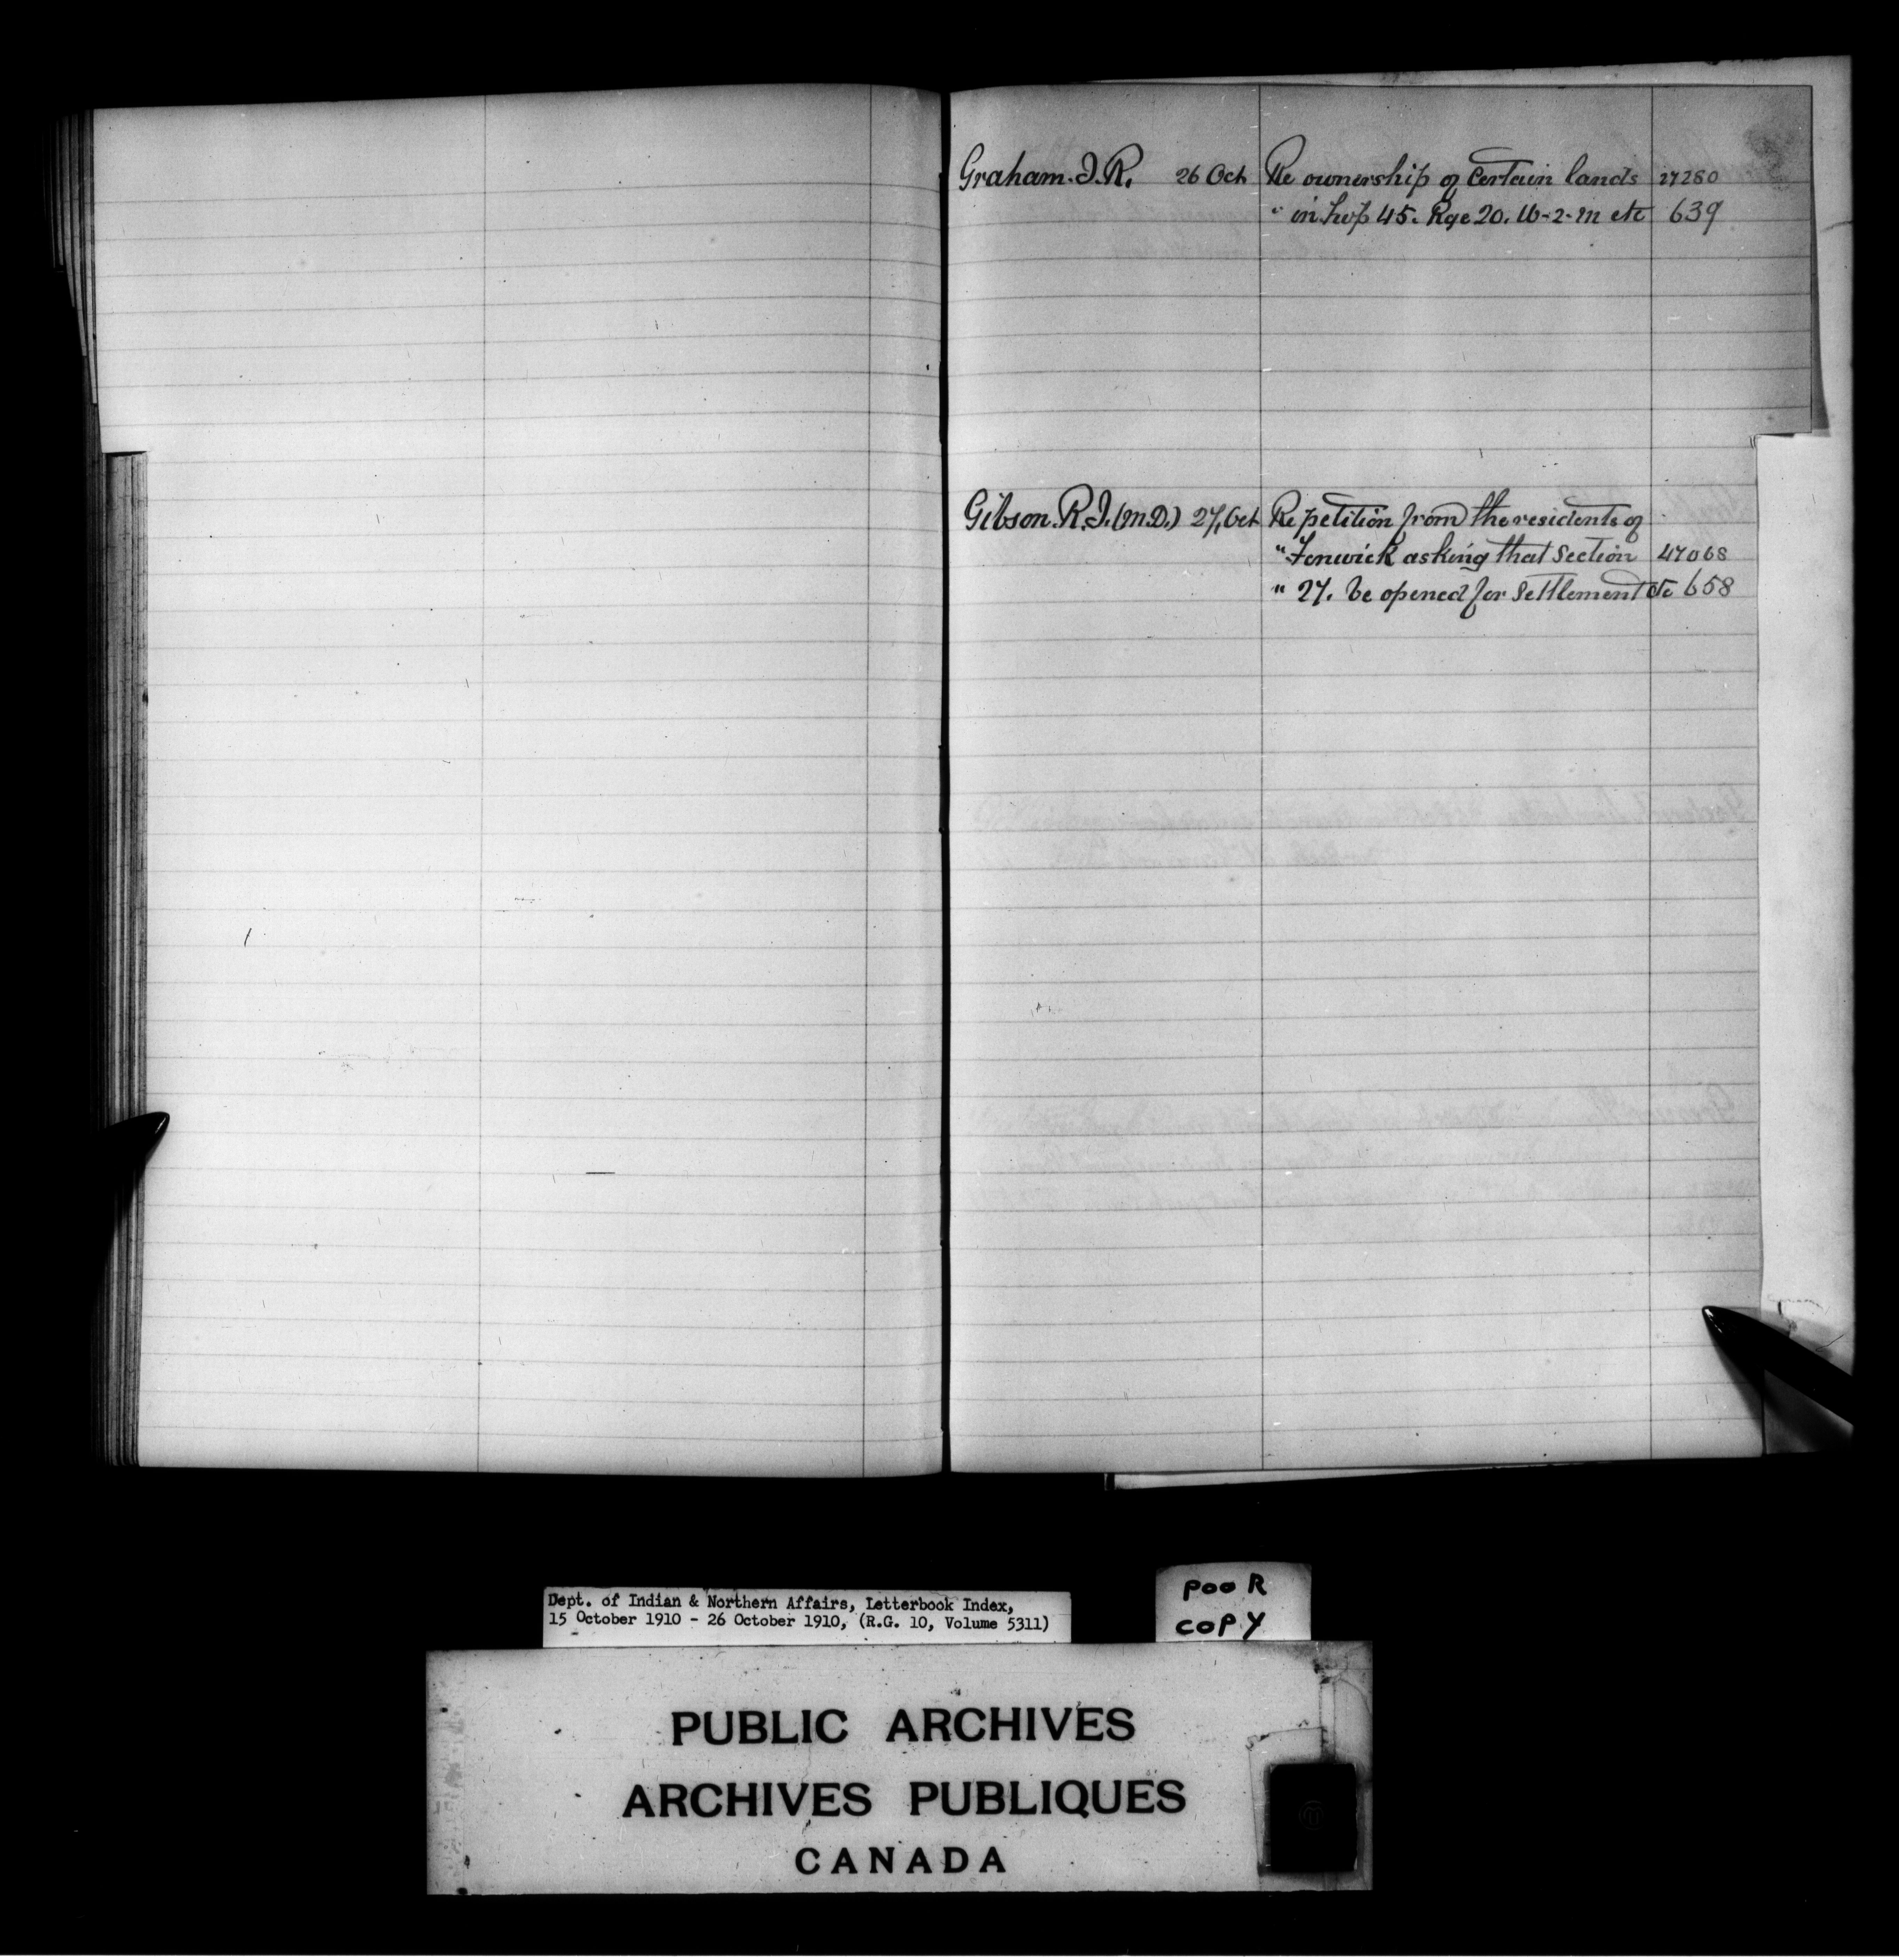 Graham. J. R. 26 Oct Re ownership of certain lands 27280
" in Twp 45. Rge 20. W-2-M etc 639
Gibson. R. J. (M.D.) 27, Oct Re petition from the residents of
" Fenwick asking that section 47068
" 27. be opened for settlement etc 658
Dept. of Indian & Northern Affairs, Letterbook Index,
15 October 1910 - 26 October 1910, (R.G. 10, Volume 5311)
POOR
COPY
PUBLIC ARCHIVES
ARCHIVES PUBLIQUES
CANADA